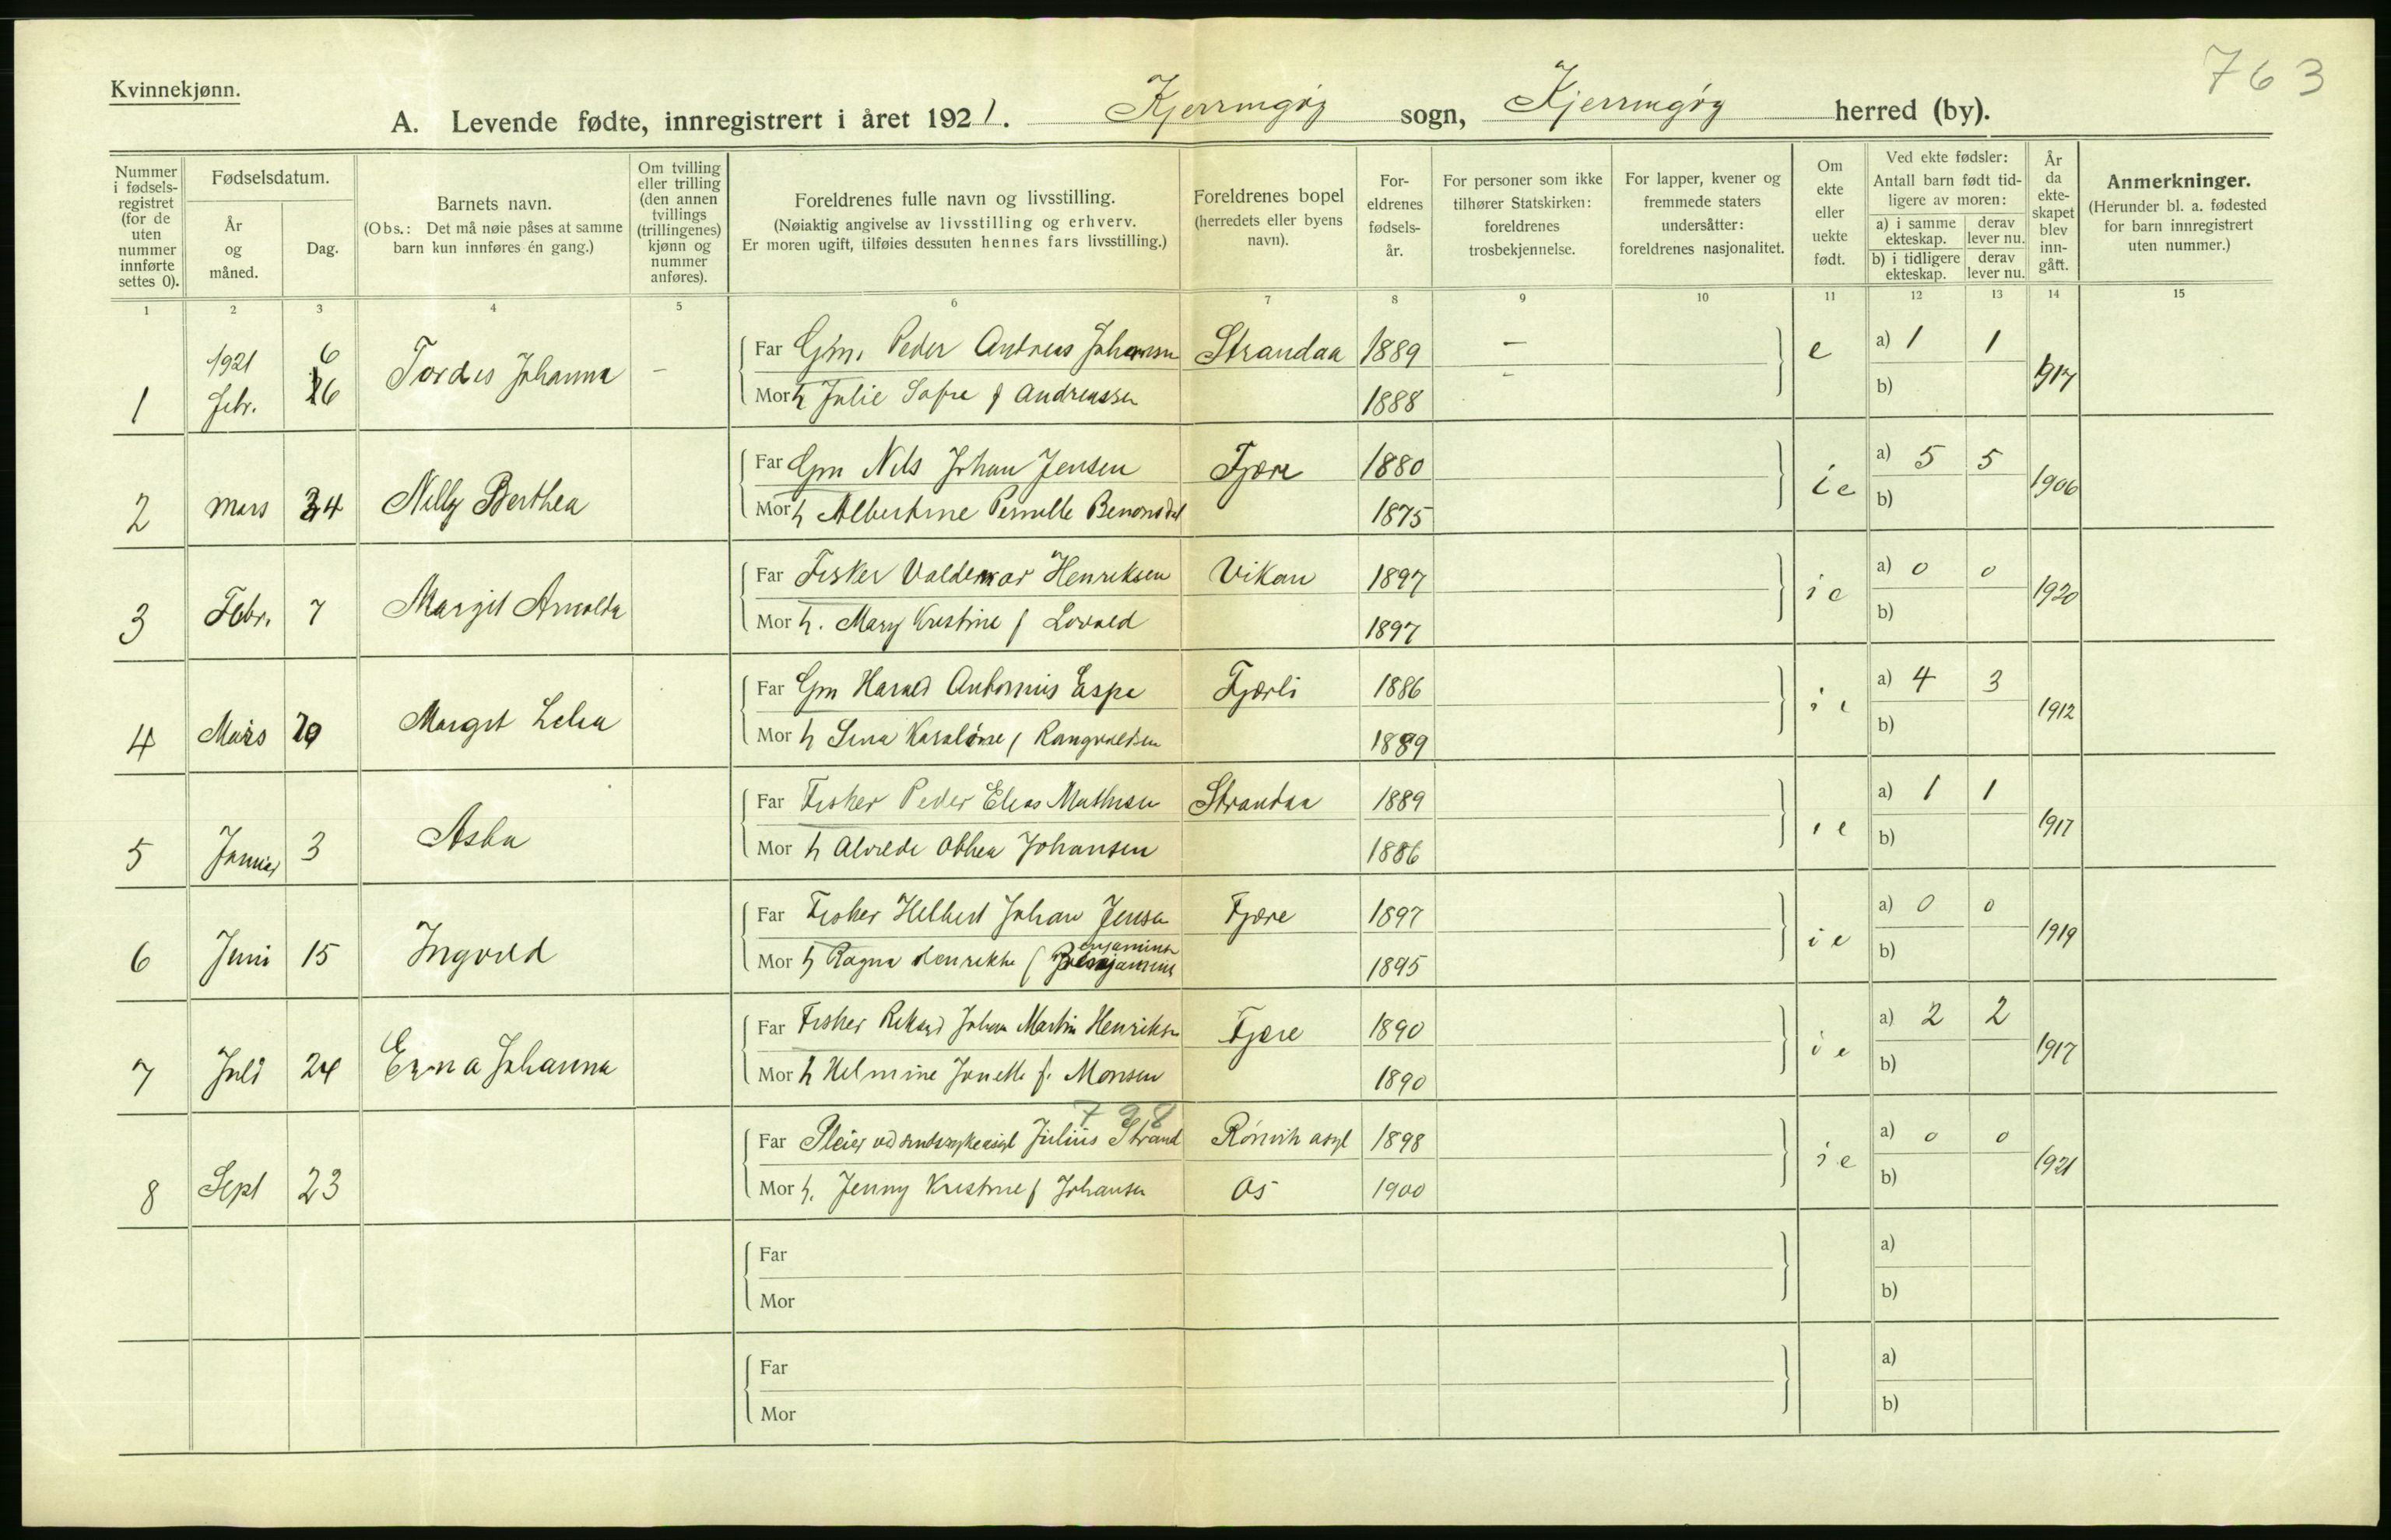 763
Kvinnekjønn.
A. Levende fødte, innregistrert i året 1921. Kjerringøy sogn, Kjerringøy herred (by).
Nummer i fødsels-registret (for de uten nummer innførte settes 0).
Fødselsdatum.
År og måned.
Dag.
Barnets navn.
(Obs.: Det må nøie påses at samme barn kun innføres én gang.)
Om tvilling eller trilling (den annen tvillings (trillingenes) kjønn og nummer anføres).
Foreldrenes fulle navn og livsstilling.
(Nøiaktig angivelse av livsstilling og erhverv.
Er moren ugift, tilføies dessuten hennes fars livsstilling.)
Foreldrenes bopel (herredets eller byens navn).
For-eldrenes fødsels-år.
For personer som ikke tilhører Statskirken: foreldrenes trosbekjennelse.
For lapper, kvener og fremmede staters undersåtter: foreldrenes nasjonalitet.
Om ekte eller uekte født.
Ved ekte fødsler:
Antall barn født tid-ligere av moren:
a) i samme ekteskap. derav lever nu.
b) i tidligere ekteskap. derav lever nu.
År da ekte-skapet blev inn-gått.
Anmerkninger.
(Herunder bl. a. fødested for barn innregistrert uten nummer.)
1 2 3 4 5 6 7 8 9 10 11 12 13 14 15
1 1921 Febr. 6 Tordes Johanna - Far Gm. Peder Andreas Johansen Strandaa 1889 - e a) 1 1 1917
Mor h Julie Sofie f Andreassen 1888 - b)
2 Mars 24 Nelly Berthea Far Gm Nils Johan Jensen Fjære 1880 ie a) 5 5 1906
Mor h Albertine Pernille Benonsdat 1875 b)
3 Febr. 7 Margit Arnolda Far Fisker Valdemar Henriksen Vikan 1897 ie a) 0 0 1920
Mor h. Mary Kristine f Lovold 1897 b)
4 Mars Margit Far Gm Harald Antonius Espe Fjærli 1886 ie a) 4 3 1912
Mor h Lina f 1889 b)
5 Januar 3 Asta Far Fisker Peder Elias Mathisen Strandaa 1889 ie a) 1 1 1917
Mor h Johansen 1886 b)
6 Juni 15 Ingvild Far Fisker Johan Jensen Fjære 1897 ie a) 0 0 1919
Mor h Ragna Henrikke f Benjaminsen 1895 b)
7 Juli 24 Erna Johanna Far Fisker Johan Martin Henriksen Fjære 1890 ie a) 2 2 1917
Mor h Helmine Jonette f. Monsen 1890 b)
798
8 Sept 23 Far Pleier ved Julius Strand Rønvik asyl 1898 ie a) 0 0 1921
Mor h. Jenny Kristine f Johansen Os 1900 b)
Far a)
Mor b)
Far a)
Mor b)